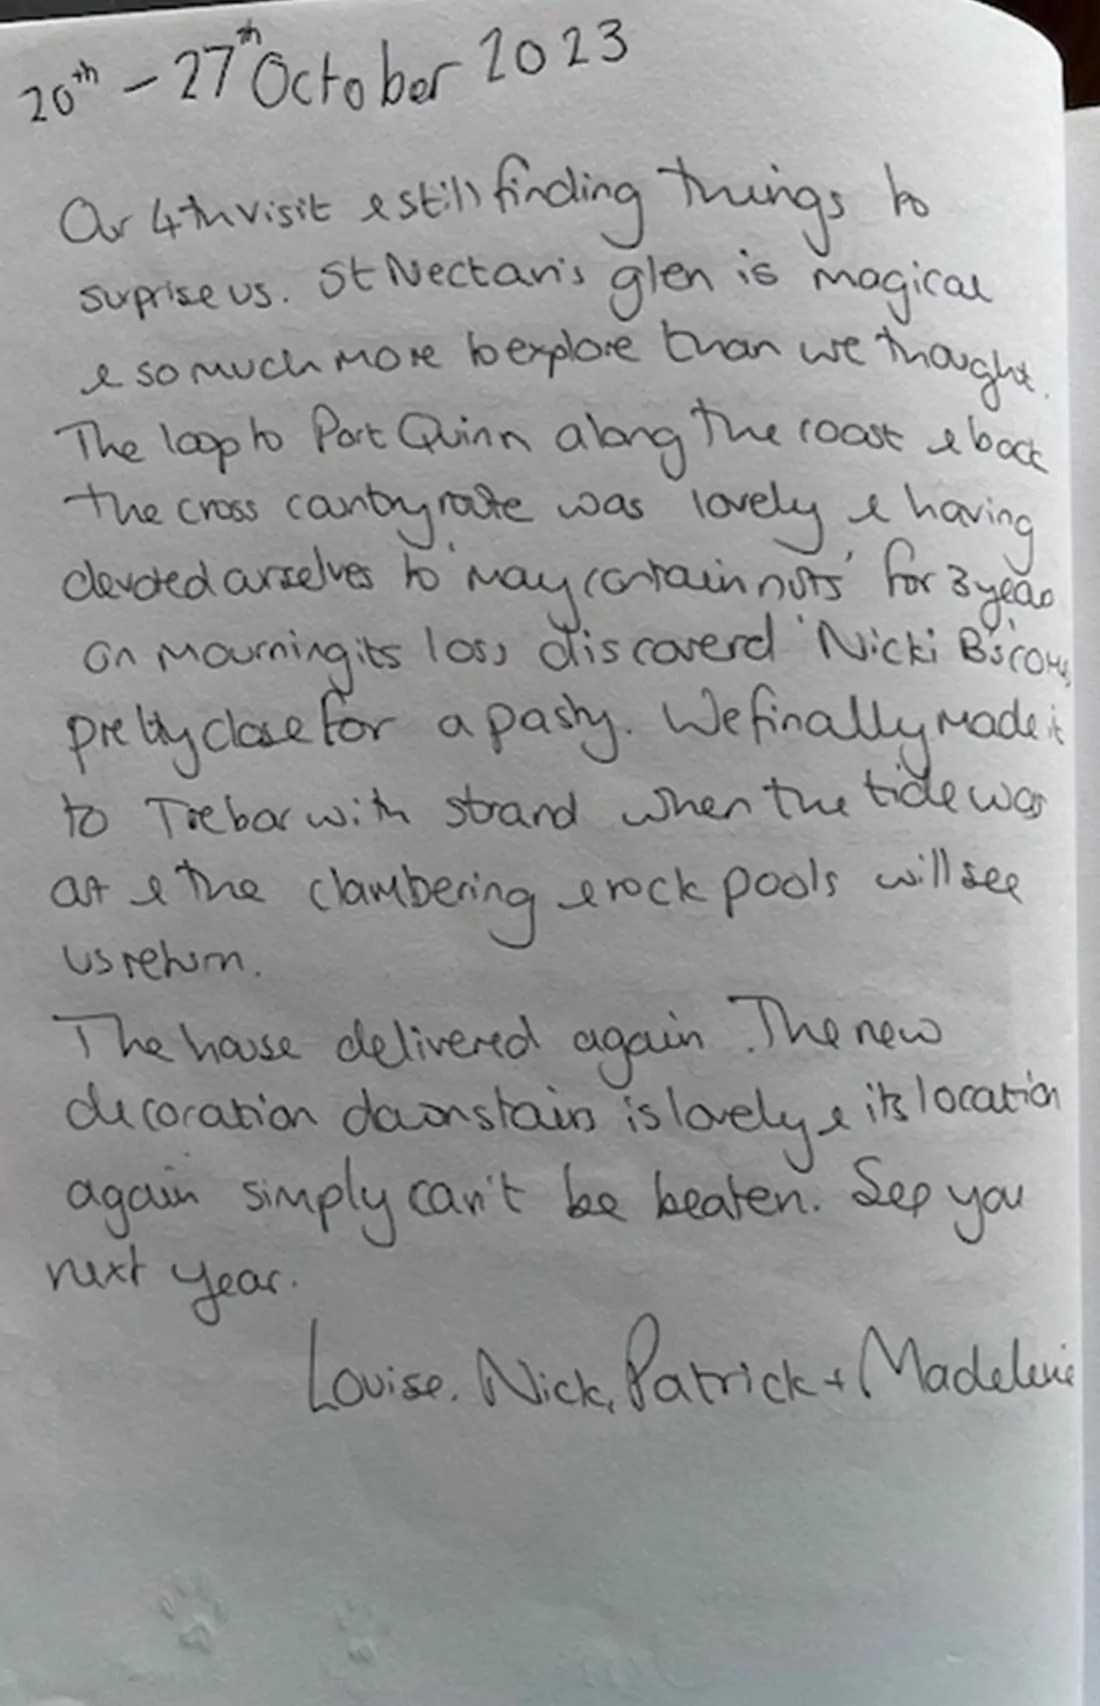 20th - 27th October 2023
Our 4th visit & still finding things to
surprise us. St Nectan's glen is magical
& so much more to explore than we thought.
The loop to Port Quinn along the coast & back
the cross country route was lovely & having
devoted ourselves to 'may contain nuts' for 3 years
on mourning its loss discoverd 'Nicki B's'
pretty close for a pasty. We finally made it
to Trebarwith strand when the tide was
out & the clambering & rock pools will see
us return.
The house delivered again. The new
decoration downstairs is lovely & its location
again simply can't be beaten. See you
next year.
Louise, Nick, Patrick + Madeleine